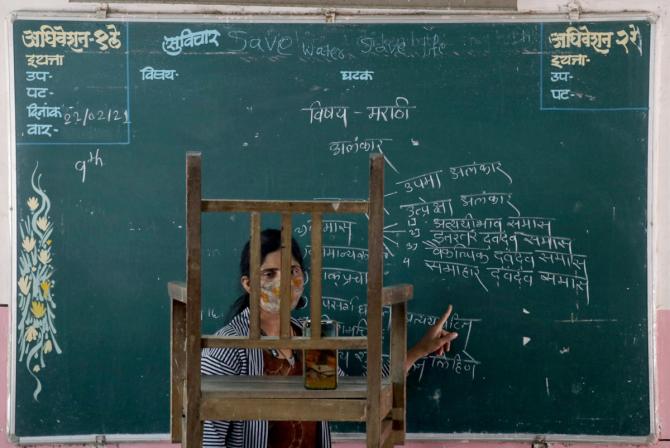 अधिवेशन-१ले
इयत्ता
उप-
पट-
दिनांक 22/02/21
वार-
सुविचार
Save Water Save life
अधिवेशन २रे
इयत्ता
उप-
पट-
विषय-
घटक
विषय - मराठी
9th
अलंकार
उपमा अलंकार
उत्प्रेक्षा अलंकार
समास
1) अव्ययीभाव समास
2) इतरेतर दवंदव समास
3) वैकल्पिक दवंदव समास
4 समाहार दवंदव समास
लिहिणे